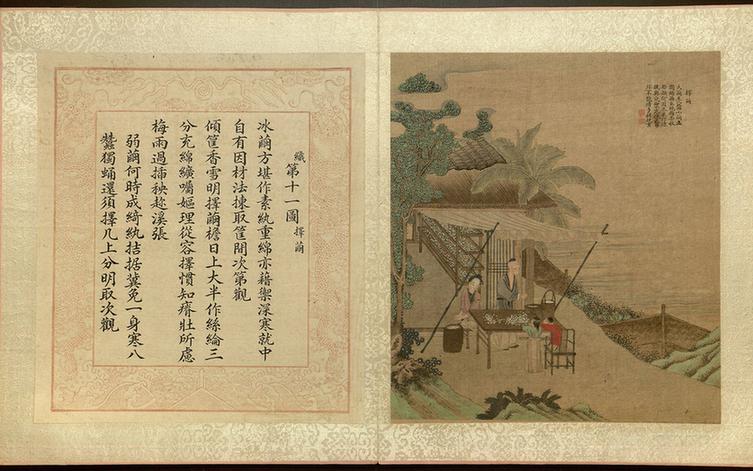 擇繭
織第十一圖擇繭
冰繭方堪作素紈重綿亦藉禦深寒就中
自有因材法揀取筐間次第觀
傾筐香雪明擇繭檐日上大半作絲綸三
分充綿纊囑嫗理從容擇慣知瘠壯所慮
梅雨過插秧趁溪張
弱繭何時成綺紈拮据冀免一身寒八
蠶獨蛹還須擇几上分明取次觀